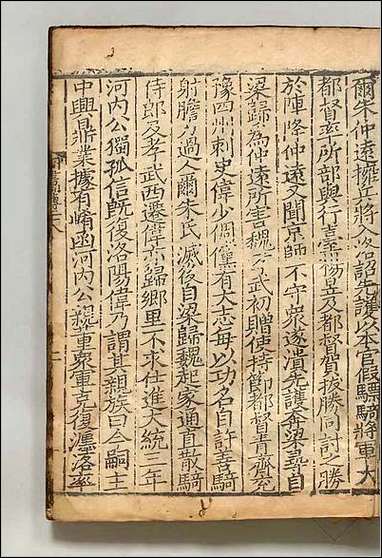 爾朱仲遠擁兵將入洛詔先護以本官假驃騎將軍大
都督率所部與行臺楊昱及都督賀拔勝同討之勝
於陣降仲遠又聞京師不守衆遂潰先護奔梁尋自
梁歸為仲遠所害魏孝武初贈使持節都督青齊兗
豫四州刺史偉少倜儻有大志每以功名自許善騎
射膽力過人爾朱氏滅後自梁歸魏起家通直散騎
侍郎及孝武西遷偉亦歸鄉里不求仕進大統三年
河內公獨孤信旣復洛陽偉乃謂其親族曰今嗣主
中興鼎業據有崤函河內公親董衆軍克復瀍洛率